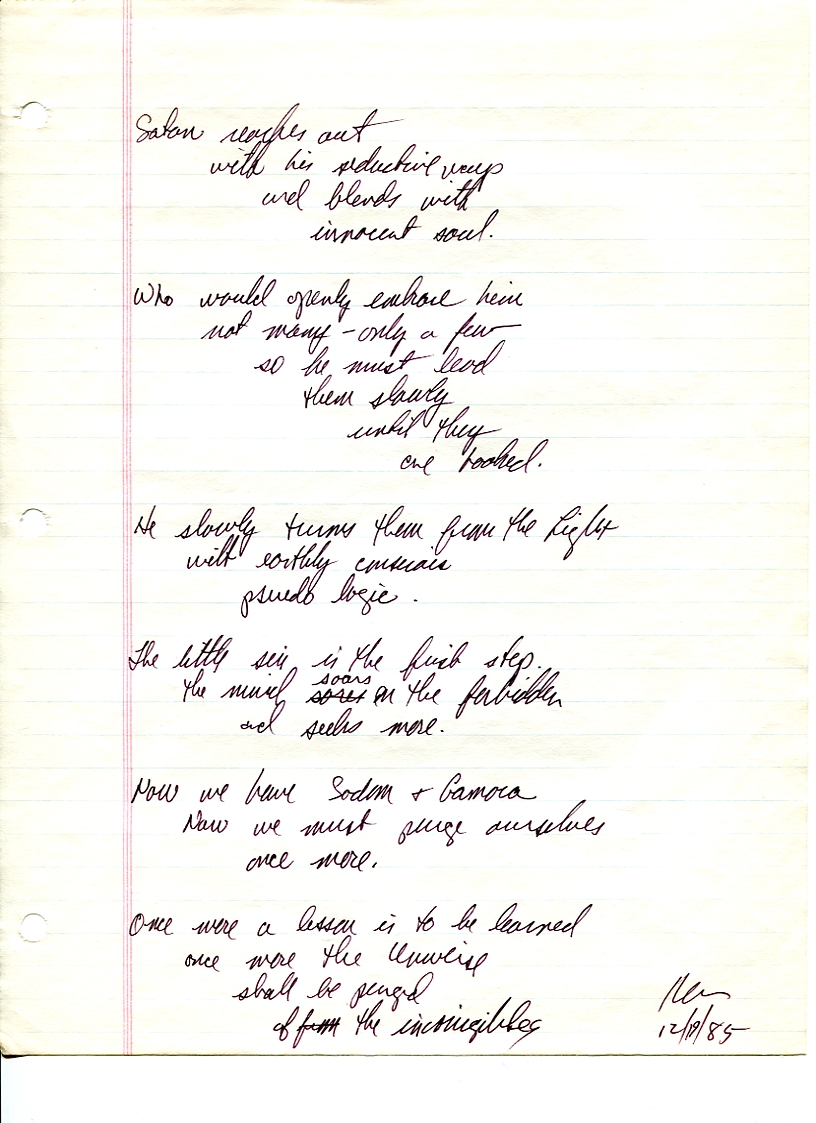 Satan reaches out
with his seductive ways
and blends with
innocent soul.
Who would openly embrace him
not many - only a few
so he must lead
them slowly
until they
are hooked.
He slowly turns them from the Light
with earthly
pseudo logic.
The little sin is the first step.
the mind soars on the forbidden
and seeks more.
Now we have Sodom + Gamora
Now we must purge ourselves
once more.
Once more a lesson is to be learned
once more the Universe
shall be purged
of the incorrigibles
Ken